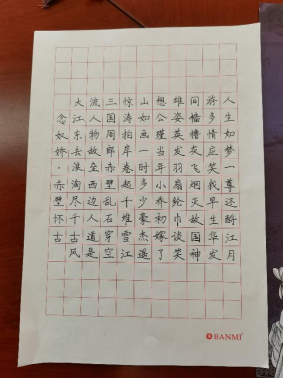 念奴娇·赤壁怀古
大江东去浪淘尽千古风
流人物故垒西边人道是
三国周郎赤壁乱石穿空
惊涛拍岸卷起千堆雪江
山如画一时多少豪杰遥
想公瑾当年小乔初嫁了
雄姿英发羽扇纶巾谈笑
间樯橹灰飞烟灭故国神
游多情应笑我早生华发
人生如梦一尊还酹江月
BANMI